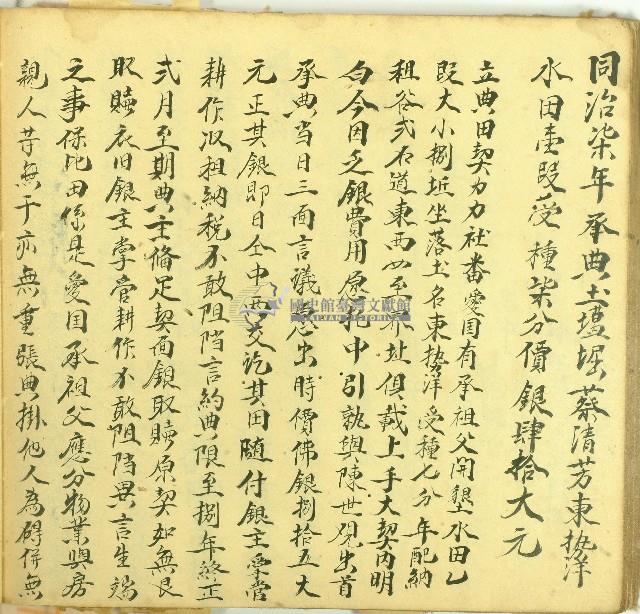 同治柒年承典土墻堀蔡清芳東势洋
水田壹段受種柒分價銀肆拾大元
立典田契力力社番愛国有承祖父開墾水田乙
段大小捌坵坐落土名東势洋受種七分年配納
租谷弍石道東西四至界址俱載上手大契內明
白今因乏銀費用原托中引就與陳世硯出首
承典當日三面言議慿出時價佛銀捌拾五大
元正其銀即日仝中兩交訖其田隨付銀主掌管
耕作収租納税不敢阻挡言約典限至捌年終正
弍月至期典主俻足契面銀取贖原契如無艮
取贖衣旧銀主掌管耕作不敢阻挡異言生端
之事保此田係是愛国承祖父應分物業與房
親人等無干亦無重張典掛他人為碍併無
國史館臺灣文獻館
TAIWAN HISTORICA